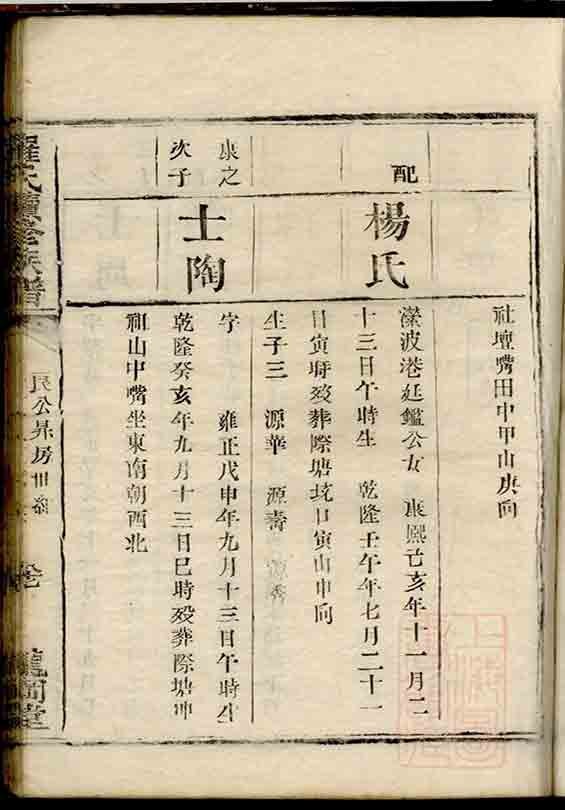 社壇嘴田中甲山庚向
配
楊氏
濴波港廷鑑公女 康熙己亥年十一月二
十三日午時生 乾隆壬午年七月二十一
日寅時歿葬際塘坑口寅山申向
生子三 源華 源壽
康之
次子
士陶
字 雍正戊申年九月十三日午時生
乾隆癸亥年九月十三日巳時歿葬際塘冲
祖山中嘴坐東南朝西北
羅氏續修族譜
民公昇房世
卷